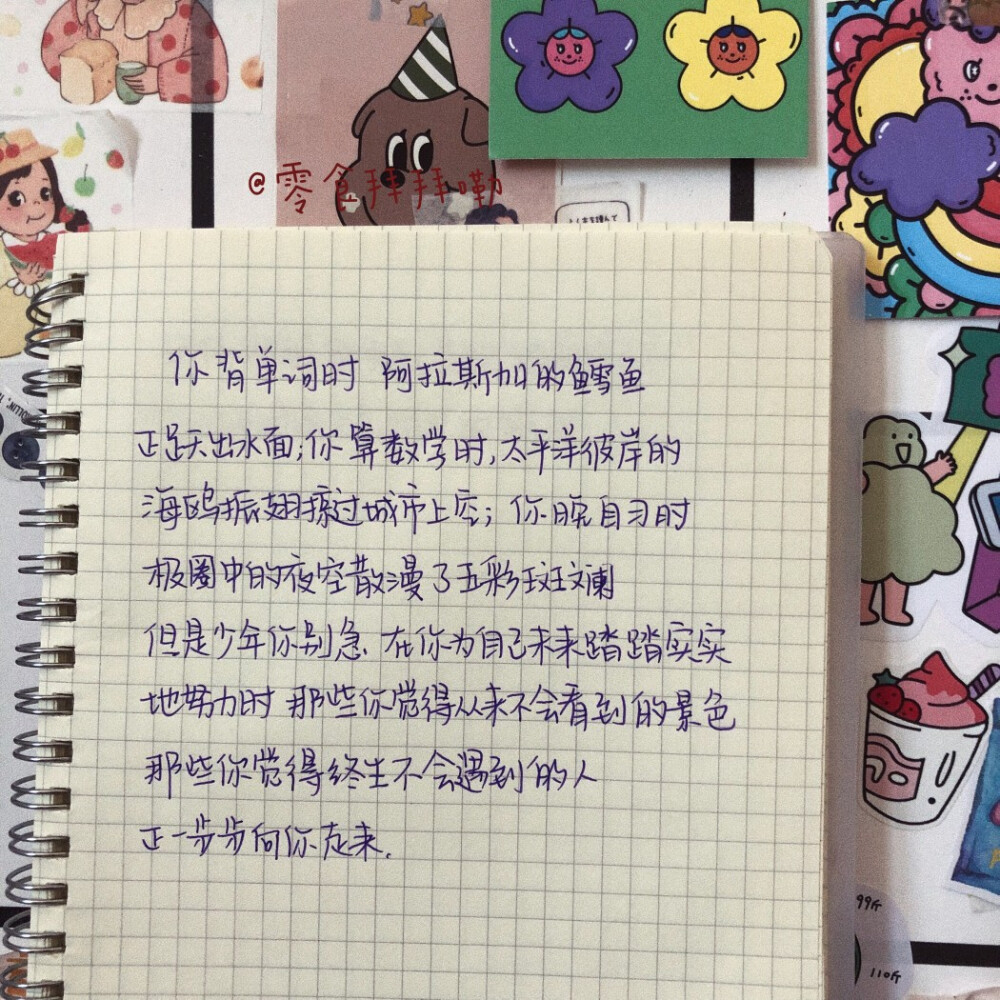 @零食拜拜嘞
你背单词时 阿拉斯加的鳕鱼
正跃出水面;你算数学时,太平洋彼岸的
海鸥振翅掠过城市上空;你晚自习时
极圈中的夜空散漫了五彩斑斓
但是少年你别急 在你为自己未来踏踏实实
地努力时 那些你觉得从来不会看到的景色
那些你觉得终生不会遇到的人
正一步步向你走来.
99斤
110斤